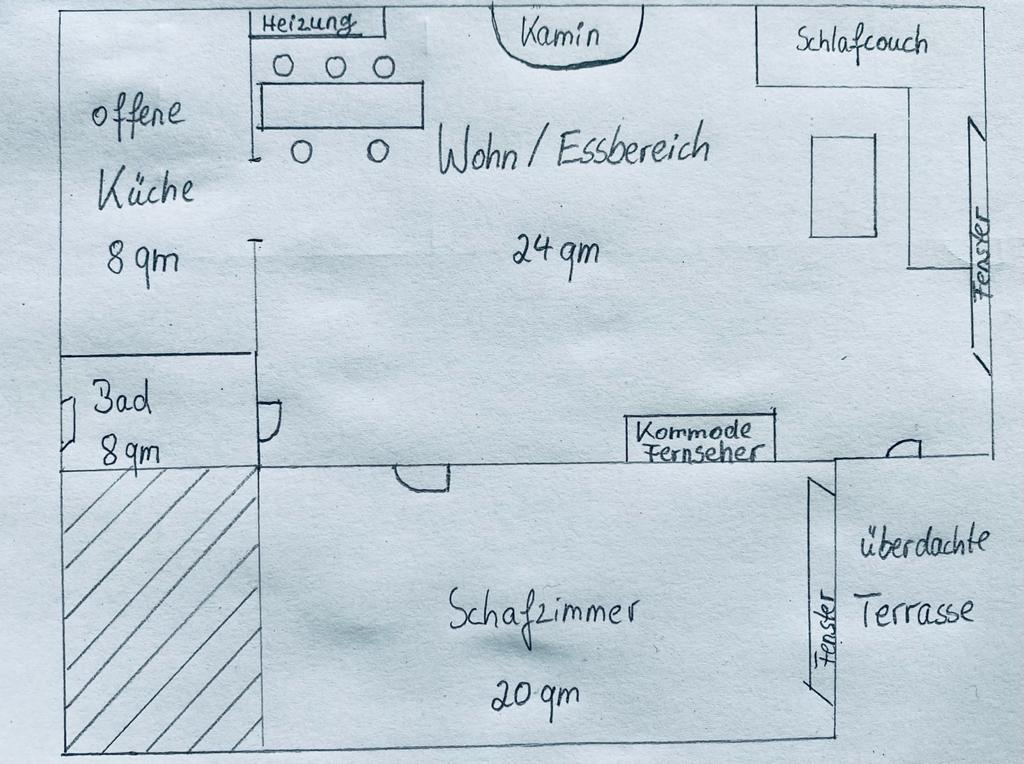 Heizung
Kamin
Schlafcouch
offene
Küche
8 qm
Wohn / Essbereich
24 qm
Fenster
Bad
8 qm
Kommode
Fernseher
Schafzimmer
20 qm
Fenster
überdachte
Terrasse